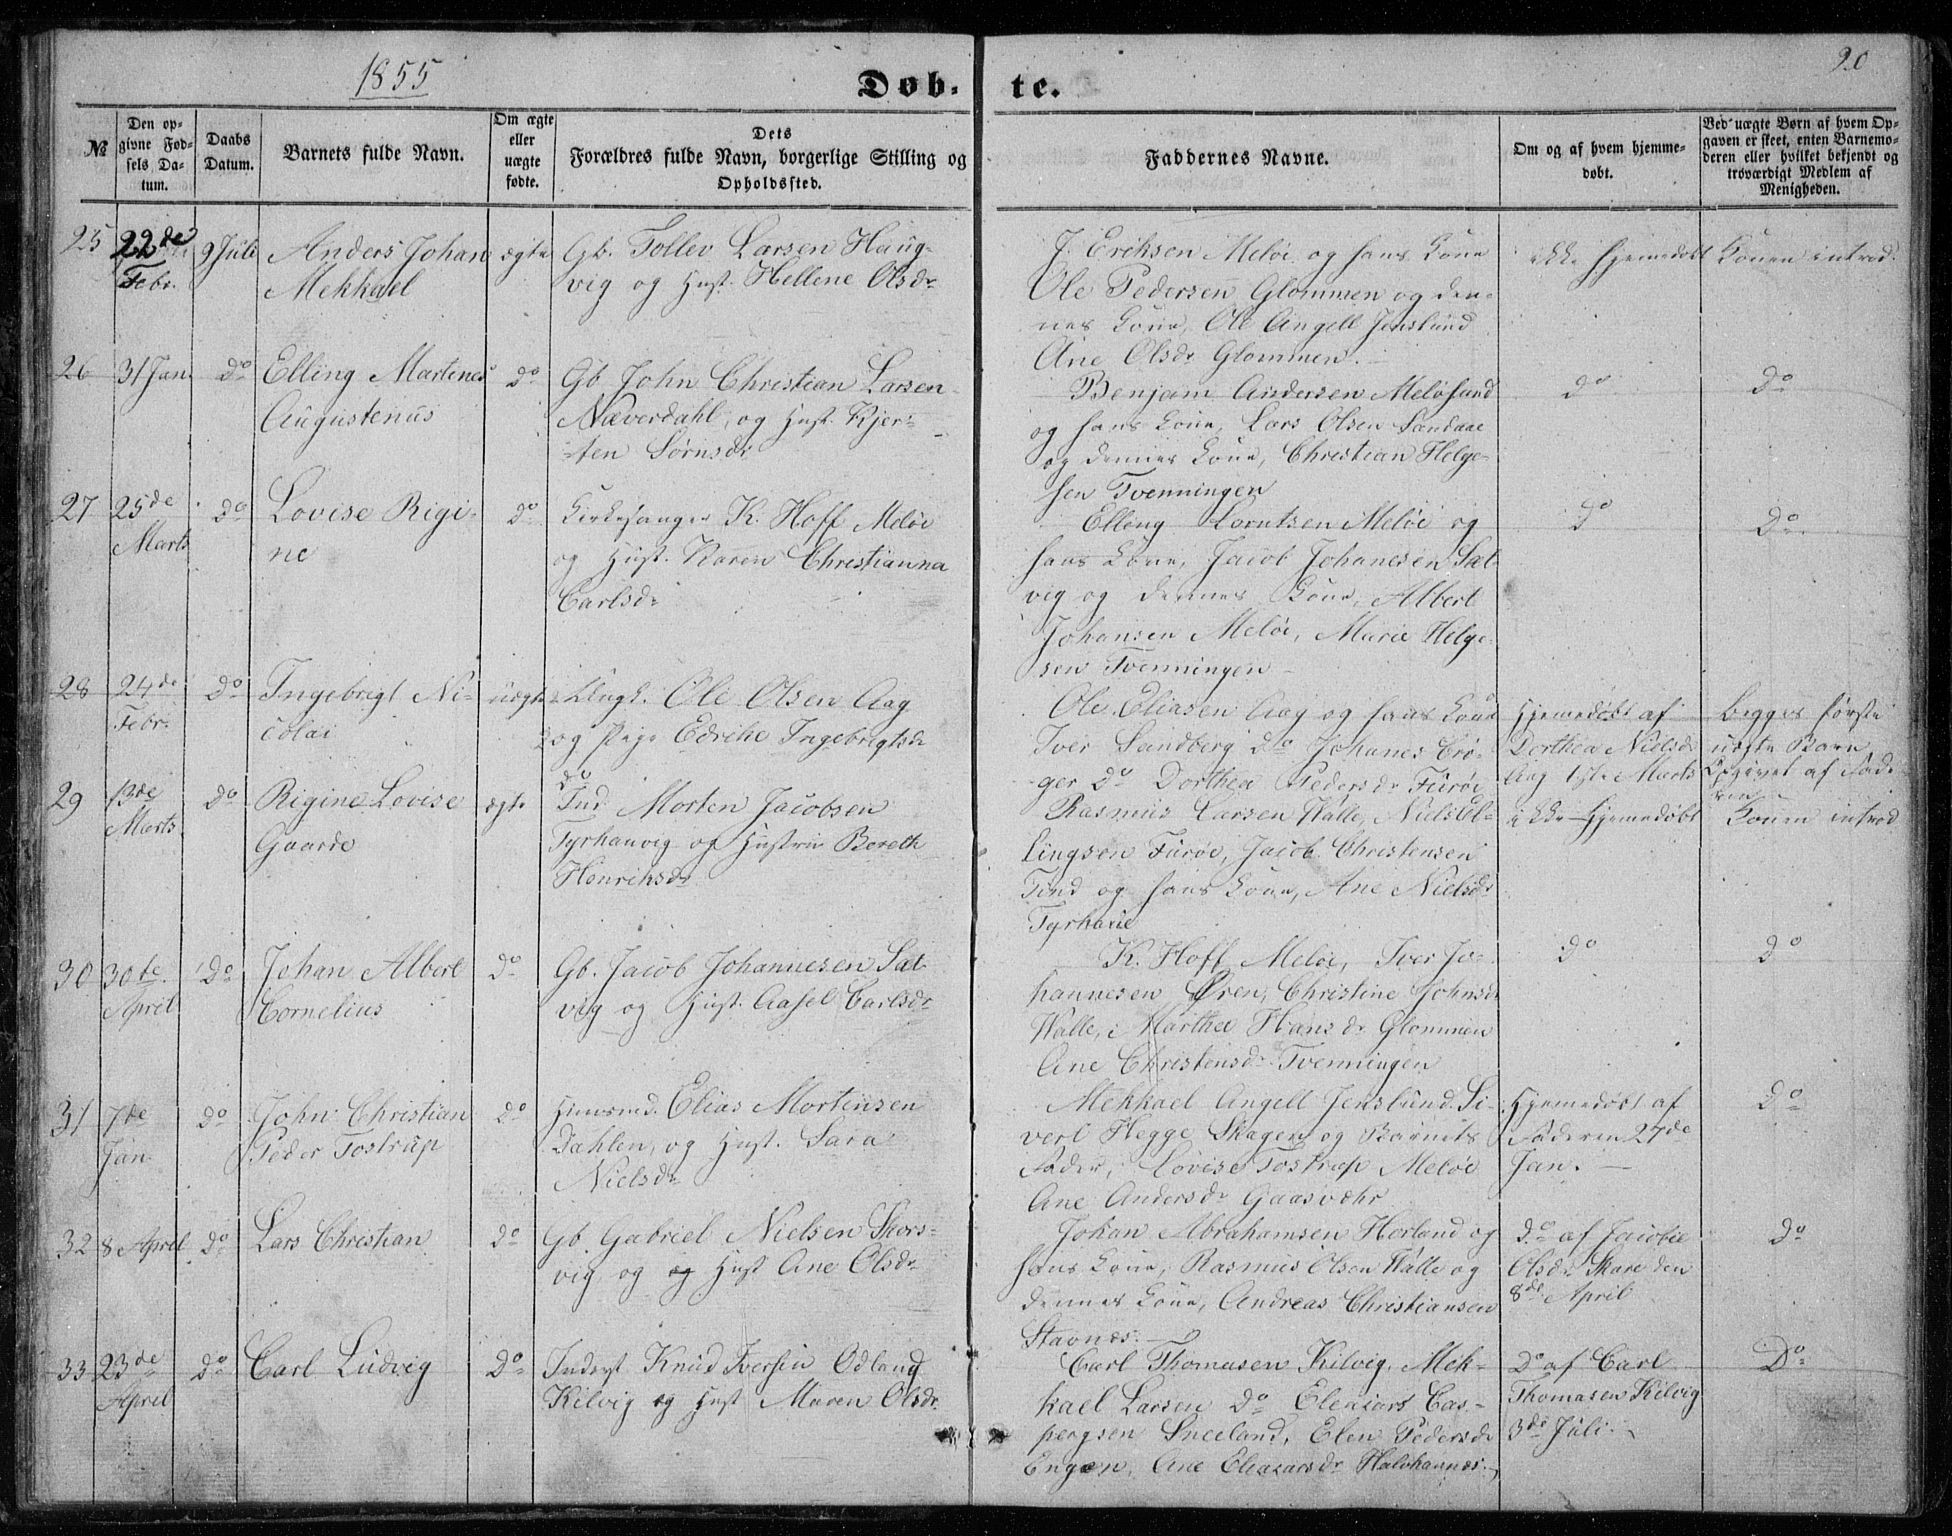 1855
Døb-
te.
20
№
Den op-
givne Fød-
sels Da-
tum.
Daabs
Datum.
Barnets fulde Navn.
Om ægte
eller
uægte
fødte.
Dets
Forældres fulde Navn, borgerlige Stilling og
Opholdssted.
Faddernes Navne.
Om og af hvem hjemme-
døbt.
Ved uægte Børn af hvem Op-
gaven er skeet, enten Barnemo-
deren eller hvilket bekjendt og
troværdigt Medlem af
Menigheden.
25
22de
Febr.
9 Juli
Anders Johan
Mekkael
ægte
Gb. Tollev Larsen Haug-
vig og Hust. Hellene Olsdr
J. Eriksen Meløe og hans Kone
Ole Pedersen Glommen og den-
nes Kone, Ole Angell Jenslund
Ane Olsdr Glommen.
ikke hjemmedøbt
Konen introd.
26
31 Jan.
do
Elling Martines
Augustenus
do
Gb. John Christian Larsen
Næverdahl, og Hust. Kjer-
sten Sørnsdr
Benjam Andersen Meløsund
og hans Kone, Lars Olsen Sandaae
og dennes Kone, Christian Helge-
sen Tvenningen
do
do
27
25de
Marts
do
Lovise Rigi-
ne
do
Kirkesanger K. Hoff Meløe
og Hust. Karen Christianna
Carlsdr
Elling Lorntsen Meløe og
hans Kone, Jacob Johanesen Sæt-
vig og dennes Kone, Albert
Johansen Meløe, Marie Helge-
sen Tvenningen
do
do
28
24de
Febr.
do
Ingebrigt Ni-
colai
uægte
Ungk. Ole Olsen Aag
og Pige Edrike Ingebrigtsdr
do
Ole Eliasen Aag og hans Kone
Iver Sandberg do Johanes Crø-
ger do Dorthea Pedersdr Furøe
Hjemedøbt af
Dorthea Nielsdr
Aag 1ste Marts
Begges første
uægte Barn
Opgivet af Fade-
ren
29
13de
Marts
do
Rigine Lovise
Gaarde
ægte
Ind. Morten Jacobsen
Tyrhauvig og Hustrue Bereth
Henriksdr
Rasmus Larsen Walle, Niels El-
lingsen Furøe, Jacob Christensen
Tind og hans Kone, Ane Nielsdr
Tyrhavie
ikke Hjemedøbt
Konen introd
30
30te
April
do
Johan Albert
Cornelius
do
Gb. Jacob Johannesen Sæt-
vig og Hust. Aasel Carlsdr
K. Hoff Meløe, Iver Jo-
hannesen Øren, Christine Johnsdr
Walle, Marthea Hansdr Glommen
Ane Christensdr Tvenningen
do
do
31
7de
Jan
do
John Christian
Peder Tostrup
do
Huusmd. Elias Mortensen
Dahlen, og Hust. Sara
Nielsdr
Mekkael Angell Jenslund. Si-
vert Hegge Skagen og Barnets
Fader, Lovise Tostrup Meløe
Ane Andersdr Gaasvæhr
Hjemedøbt af
Faderen 27de
Jan.
do
32
8 April
do
Lars Christian
do
Gb Gabriel Nielsen Skors-
vig og og Hust Ane Olsdr
Johan Abrahamsen Horland og
hans Kone, Rasmus Olsen Walle og
dennes Kone, Andreas Christiansen
Stavnes.
do af Jacobie
Olsdr Skare den
8de April
do
33
23de
April
do
Carl Ludvig
do
Inderst Knud Iversen Odland
Kilvig og Hust Maren Olsdr.
Carl Thomasen Kilvig, Mek-
kael Larsen do Eleasars Cas-
pergsen Sneeland, Elen Pedersdr
Engen, Ane Eleazarsdr Halshannes.
do af Carl
Thomasen Kilvig
3de Juli.
do